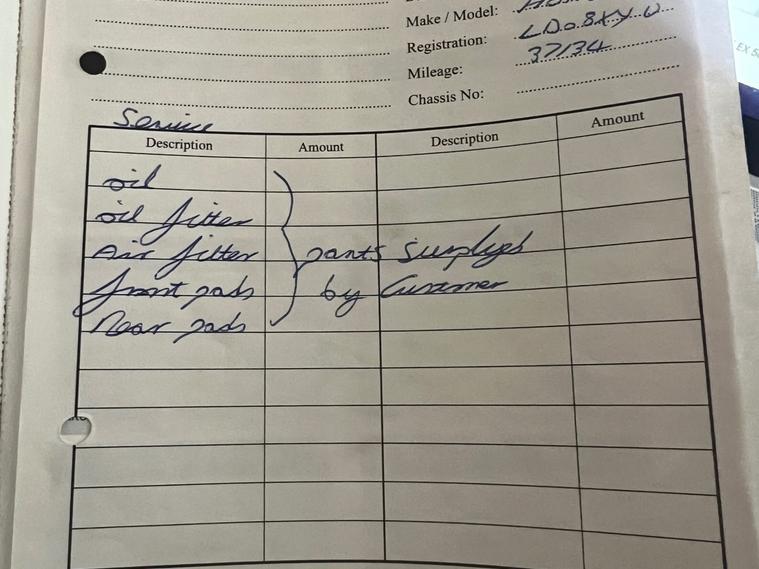 Make / Model:
Registration: LD08XYW
Mileage: 37134
Chassis No:
Service
Description Amount Description Amount
oil
oil filter
Air filter parts Supplyed
front pads by Customer
Rear pads